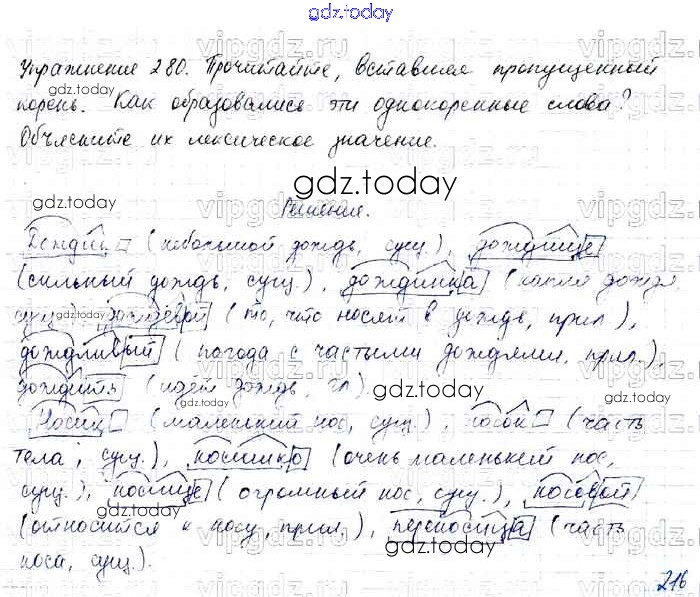 gdz.today
Упражнение 280. Прочитайте, вставляя пропущенный
корень. Как образовались эти однокоренные слова?
Объясните их лексическое значение.
gdz.today
Решение.
Дождик (небольшой дождь, сущ.), дождище
(сильный дождь, сущ.), дождинка (капля дождя,
сущ.), дождевой (то, что носят в дождь, прил.),
дождливый (погода с частыми дождями, прил.),
дождитя (идёт дождь, гл.).
Носик (маленький нос, сущ.), носок (часть
тела, сущ.), носишко (очень маленький нос,
сущ.), носище (огромный нос, сущ.), носовой
(относится к носу прил.), переносица (часть
носа, сущ.).
216